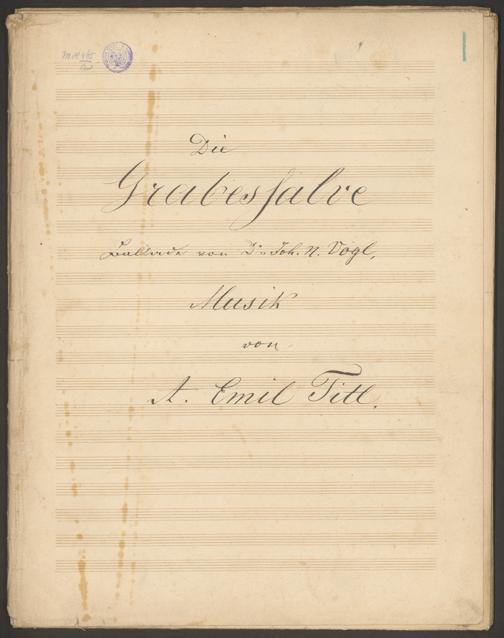 Die
Grabessalve
Ballade von Dr. Joh. N. Vogl,
Musik
von
A. Emil Titl.